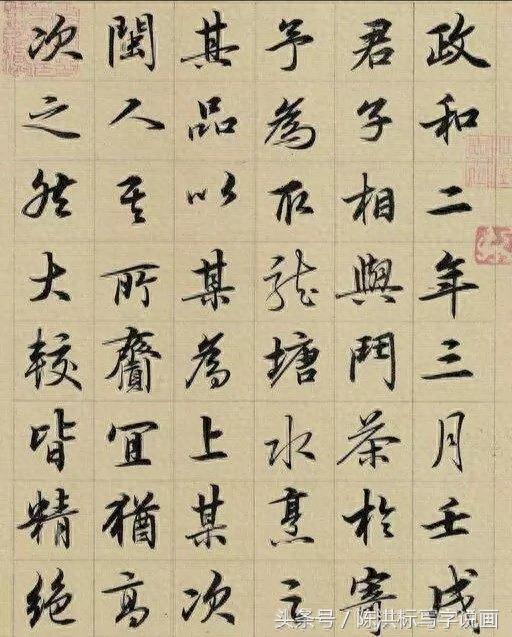 政和二年三月壬戌
君子相與鬥茶於寄
予為取龍塘水烹之
其品以某為上某次
閩人其所齎宜猶高
次之然大較皆精絕
头条号 / 陈洪标写字说画